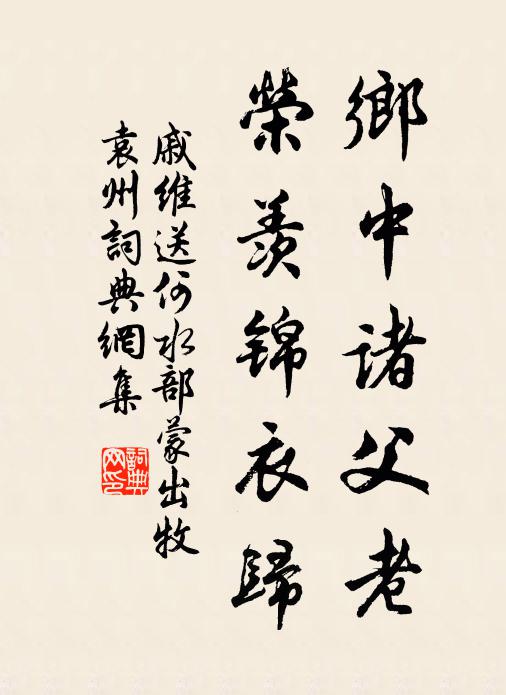 鄉中諸父老
榮羨錦衣歸
戚維送何水部蒙出牧
袁州詞典網集
詞典网印